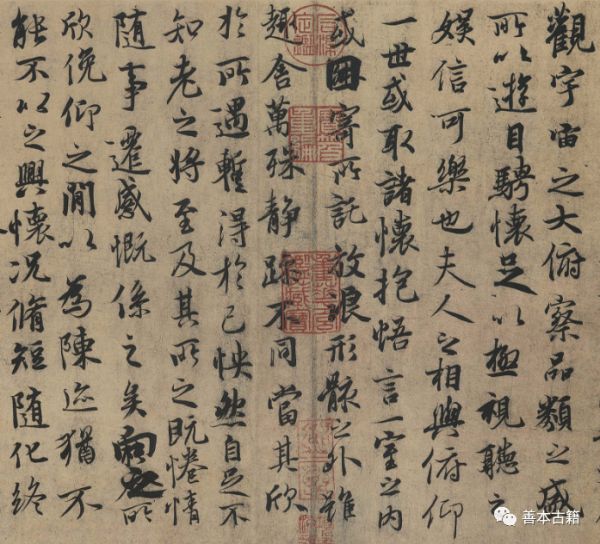 觀宇宙之大俯察品類之盛
所以遊目騁懷足以極視聽之
娛信可樂也夫人之相與俯仰
一世或取諸懷抱悟言一室之內
或因寄所託放浪形骸之外雖
趣舍萬殊靜躁不同當其欣
於所遇暫得於己怏然自足不
知老之將至及其所之既惓情
隨事遷感慨係之矣向之所
欣俛仰之閒以為陳迹猶不
能不以之興懷況脩短隨化終
善本古籍